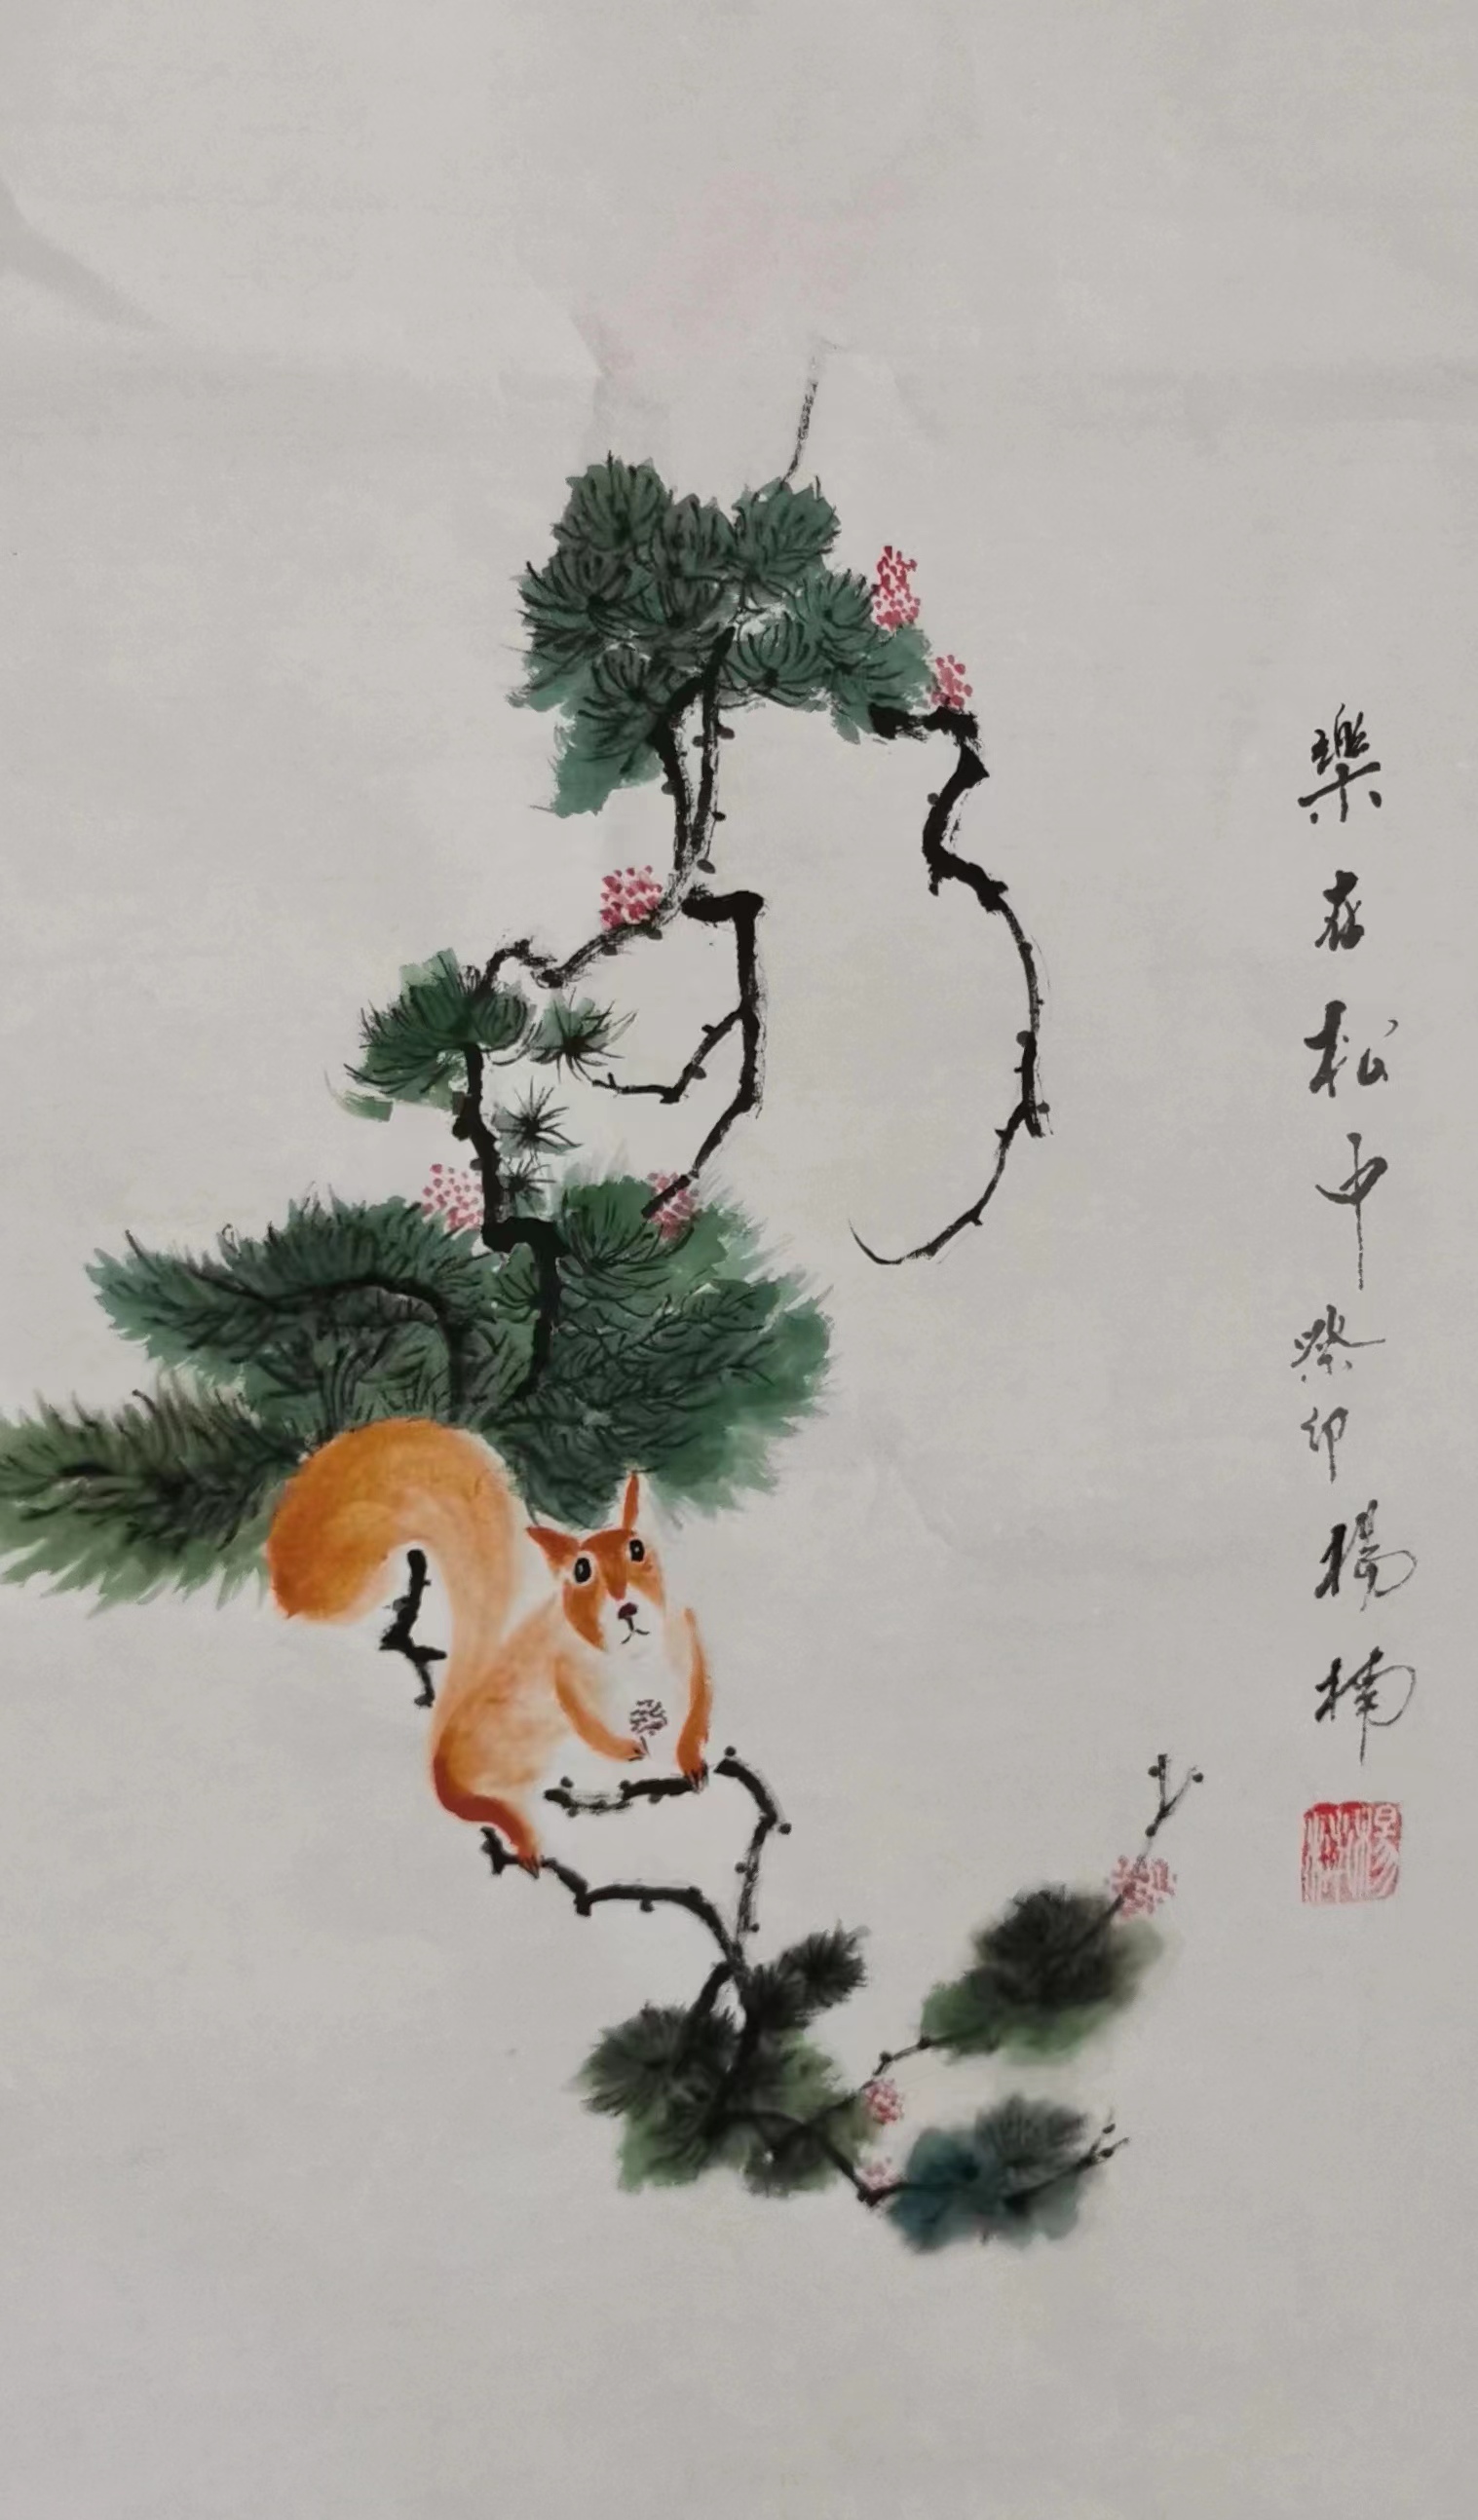 樂在松中癸卯楊楠
楊楠